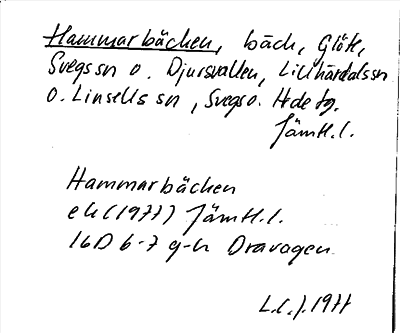 Hammarbäcken, bäck, Glöte,
Svegs sn o. Djursvallen, Lillhärdals sn
o. Linsells sn, Svegs o. Hede tg.
Jämtl. l.
Hammarbäcken
ek (1977) Jämtl. l.
16D 6-7 g-h Dravagen
L.l.j. 1977